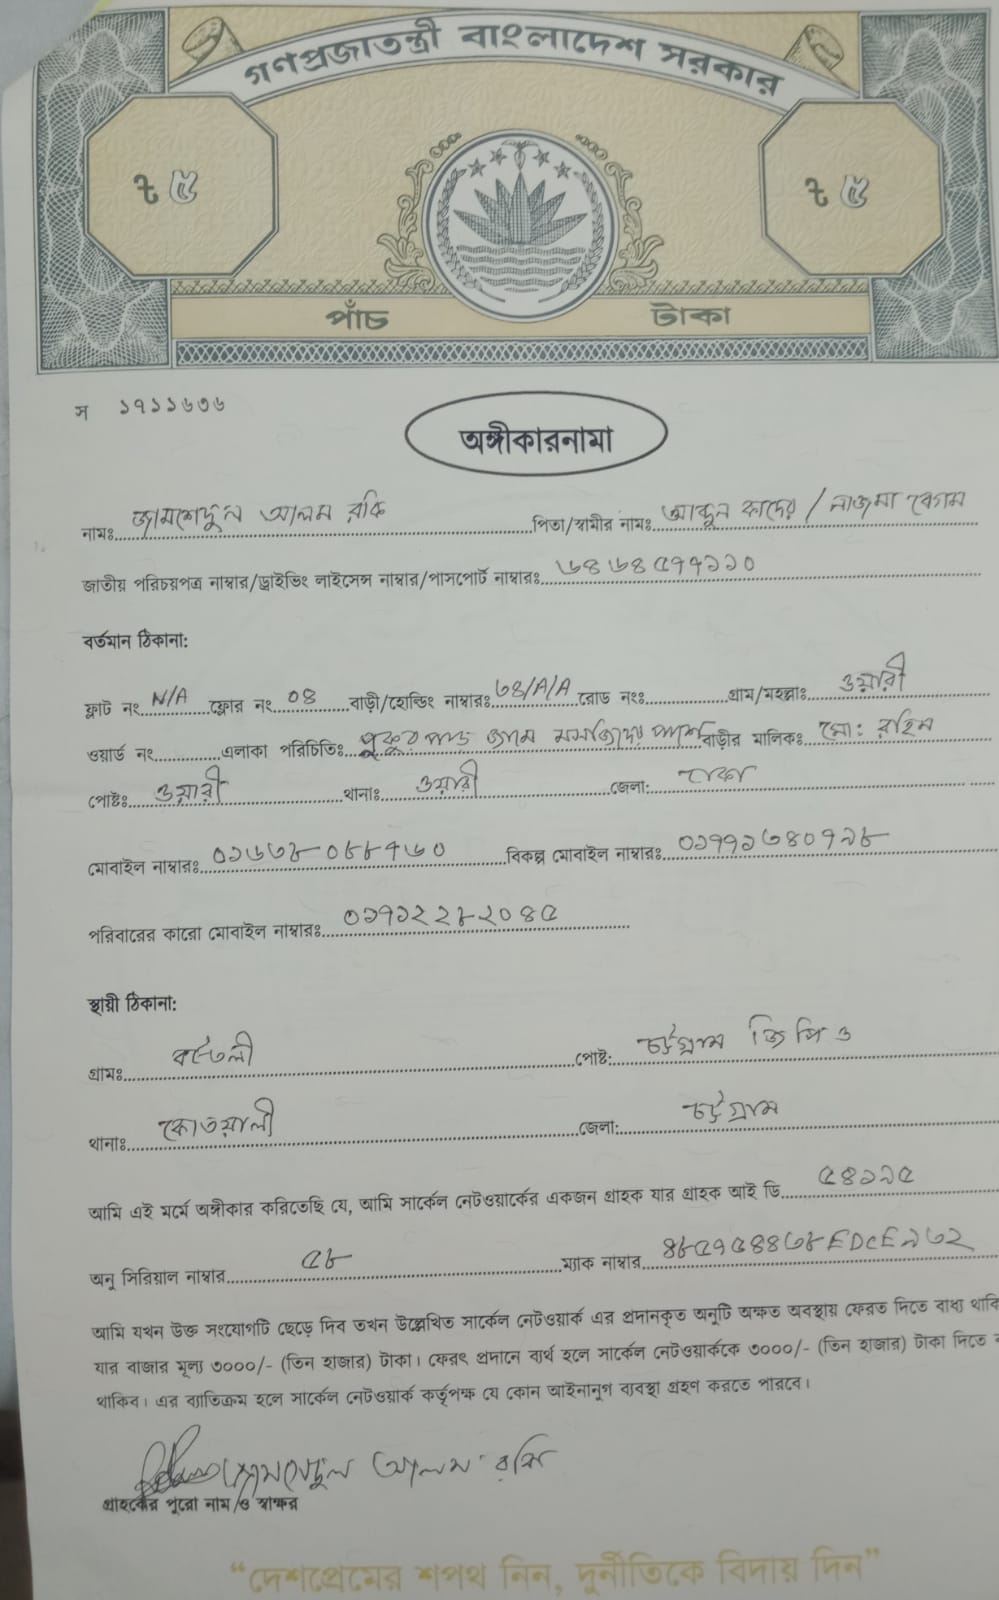 গণপ্রজাতন্ত্রী বাংলাদেশ সরকার
৳ ৫ ৳ ৫
পাঁচ টাকা
স ১৭১১৬৩৬
অঙ্গীকারনামা
নামঃ জামশেদুল আলম রকি পিতা/স্বামীর নামঃ আব্দুল কাদের / নাজমা বেগম
জাতীয় পরিচয়পত্র নাম্বার/ড্রাইভিং লাইসেন্স নাম্বার/পাসপোর্ট নাম্বারঃ ৬৪৬৪৫৭৭১১০
বর্তমান ঠিকানা:
ফ্লাট নং N/A ফ্লোর নং ০৪ বাড়ী/হোল্ডিং নাম্বারঃ ৩৪/A/A রোড নংঃ গ্রাম/মহল্লাঃ ওয়ারী
ওয়ার্ড নং এলাকা পরিচিতিঃ পুকুর পাড় জামে মসজিদের পাশে বাড়ীর মালিকঃ মো: রহিম
পোষ্টঃ ওয়ারী থানাঃ ওয়ারী জেলা: ঢাকা
মোবাইল নাম্বারঃ ০১৬৩৮০৮৮৭৬০ বিকল্প মোবাইল নাম্বারঃ ০১৭৭১৩৪০৭৯৮
পরিবারের কারো মোবাইল নাম্বারঃ ০১৭১২২৮২০৪৫
স্থায়ী ঠিকানা:
গ্রামঃ পোষ্ট: চট্টগ্রাম জিপিও
থানাঃ কোতয়ালী জেলা: চট্টগ্রাম
আমি এই মর্মে অঙ্গীকার করিতেছি যে, আমি সার্কেল নেটওয়ার্কের একজন গ্রাহক যার গ্রাহক আই ডি ৫৪১৯৫
অনু সিরিয়াল নাম্বার ৫৮ ম্যাক নাম্বার ৪৮৫৭৫৪৪৩৮EDCE৯৩২
আমি যখন উক্ত সংযোগটি ছেড়ে দিব তখন উল্লেখিত সার্কেল নেটওয়ার্ক এর প্রদানকৃত অনুটি অক্ষত অবস্থায় ফেরত দিতে বাধ্য থাকি
যার বাজার মূল্য ৩০০০/- (তিন হাজার) টাকা। ফেরৎ প্রদানে ব্যর্থ হলে সার্কেল নেটওয়ার্ককে ৩০০০/- (তিন হাজার) টাকা দিতে
থাকিব। এর ব্যাতিক্রম হলে সার্কেল নেটওয়ার্ক কর্তৃপক্ষ যে কোন আইনানুগ ব্যবস্থা গ্রহণ করতে পারবে।
জামশেদুল আলম রকি
গ্রাহকের পুরো নাম ও স্বাক্ষর
“দেশপ্রেমের শপথ নিন, দুর্নীতিকে বিদায় দিন”